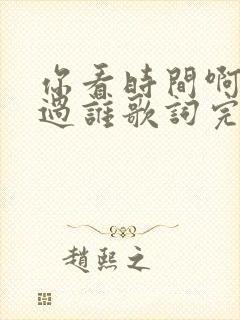 你看時間啊
過誰歌詞完
趙熙之